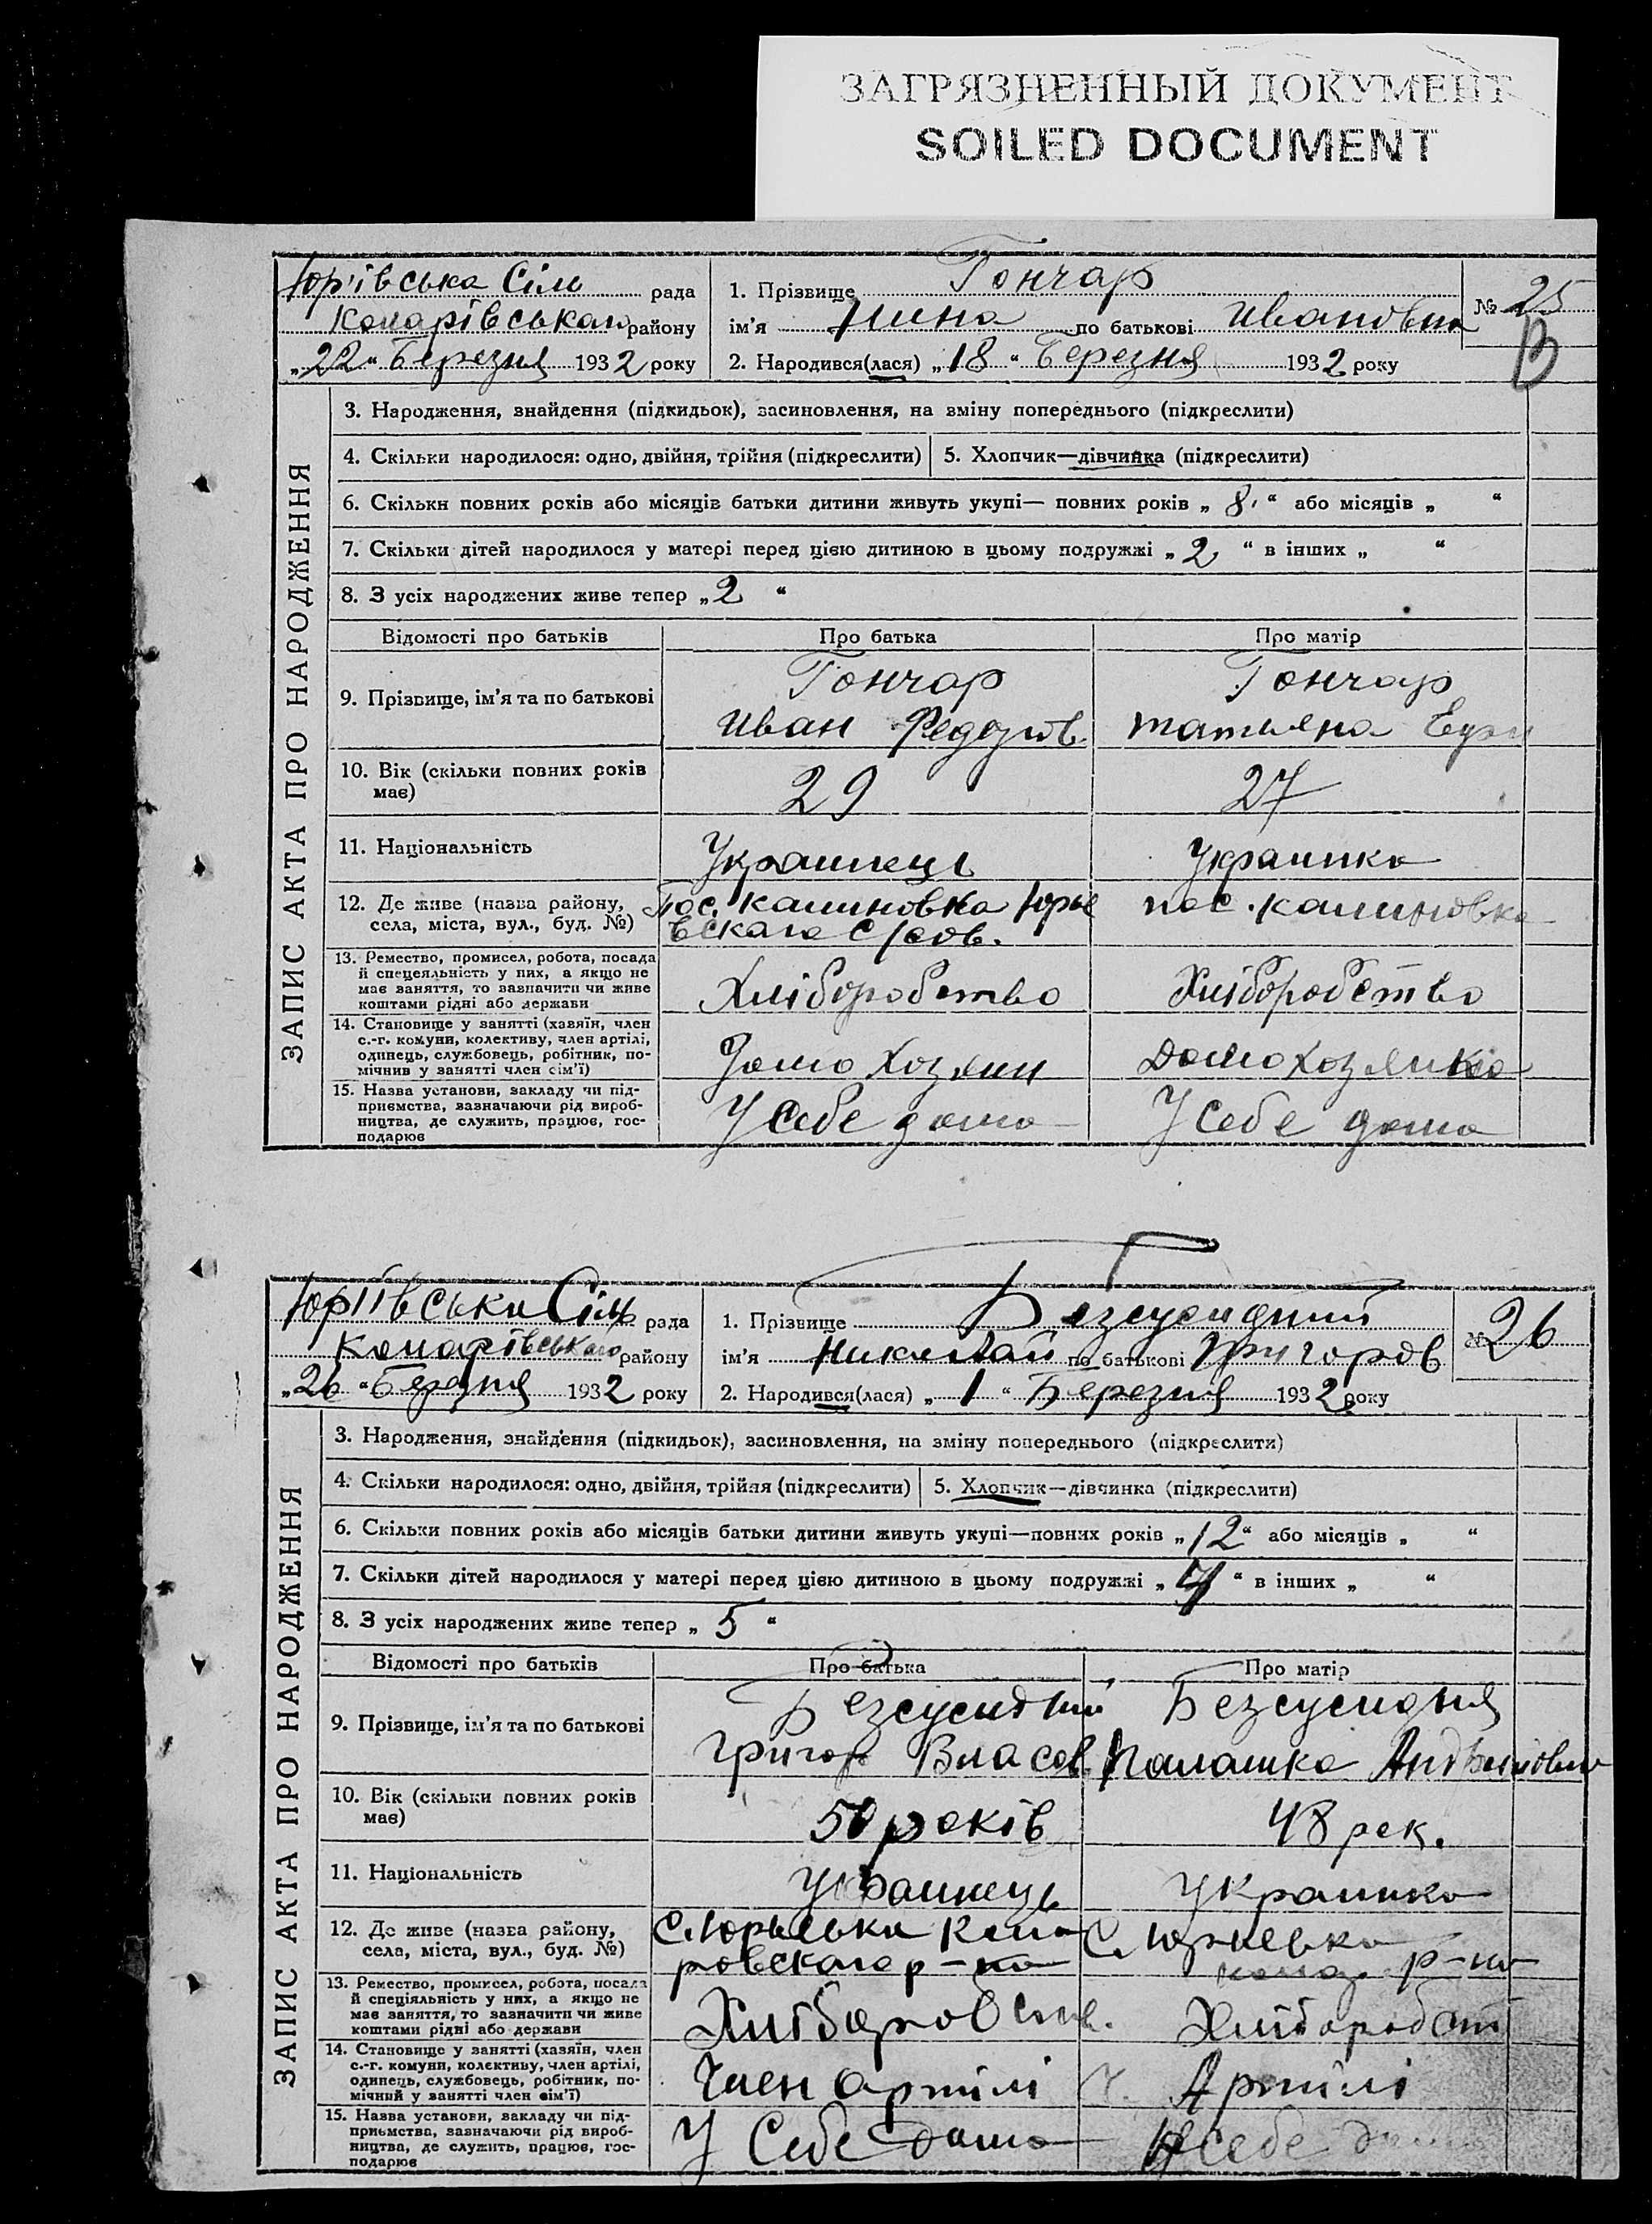 ЗАГРЯЗНЕННЫЙ ДОКУМЕНТ
SOILED DOCUMENT
Юр'івська Сіль рада
Комарівськаго району
„22“ Березня 1932 року
1. Прізвище Гончар
ім'я Нина по батькові Ивановна
2. Народився(лася) „18“ Березня 1932 року
№ 25
В
ЗАПИС АКТА ПРО НАРОДЖЕННЯ
3. Народження, знайдення (підкидьок), засиновлення, на зміну попереднього (підкреслити)
4. Скільки народилося: одно, двійня, трійня (підкреслити) 5. Хлопчик—дівчинка (підкреслити)
6. Скільки повних років або місяців батьки дитини живуть укупі— повних років „8“ або місяців „ “
7. Скільки дітей народилося у матері перед цією дитиною в цьому подружжі „2“ в інших „ “
8. З усіх народжених живе тепер „2“
Відомості про батьків Про батька Про матір
9. Прізвище, ім'я та по батькові
Гончар
Иван Федоров.
Гончар
Татьяна
10. Вік (скільки повних років має)
29
27
11. Національність
Украинець
Украинка
12. Де живе (назва району, села, міста, вул., буд. №)
Пос. Калиновка Юрье
вскаго с/сов.
пос. Калиновка
13. Ремество, промисел, робота, посада
й спецеяльність у них, а якщо не
має заняття, то зазначити чи живе
коштами рідні або держави
Хліборобство
Хліборобство
14. Становище у занятті (хазяїн, член
с.-г. комуни, колективу, член артілі,
одинець, службовець, робітник, по-
мічник у занятті член сім'ї)
Домохозяин
Домохозяйка
15. Назва установи, закладу чи під-
приємства, зазначаючи рід вироб-
ництва, де служить, працює, гос-
подарює
У себе дома
У себе дома
Юріївська Сіль рада
Комарівськаго району
„26“ Березня 1932 року
1. Прізвище Безсусидний
ім'я Николай по батькові Григоров
2. Народився(лася) „1“ Березня 1932 року
№ 26
ЗАПИС АКТА ПРО НАРОДЖЕННЯ
3. Народження, знайдення (підкидьок), засиновлення, на зміну попереднього (підкреслити)
4. Скільки народилося: одно, двійня, трійня (підкреслити) 5. Хлопчик—дівчинка (підкреслити)
6. Скільки повних років або місяців батьки дитини живуть укупі—повних років „12“ або місяців „ “
7. Скільки дітей народилося у матері перед цією дитиною в цьому подружжі „7“ в інших „ “
8. З усіх народжених живе тепер „5“
Відомості про батьків Про батька Про матір
9. Прізвище, ім'я та по батькові
Безсусидний
Григор Власов
Безсусидня
Палашка
10. Вік (скільки повних років має)
50 років
48 рок.
11. Національність
Украинець
Украинка
12. Де живе (назва району, села, міста, вул., буд. №)
С. Юрьевка Кома
ровскаго р-на
С. Юрьевка
Комар р-на
13. Ремество, промисел, робота, посада
й спеціяльність у них, а якщо не
має заняття, то зазначити чи живе
коштами рідні або держави
Хліборобств.
Хліборобст
14. Становище у занятті (хазяїн, член
с.-г. комуни, колективу, член артілі,
одинець, службовець, робітник, по-
мічний у занятті член сім'ї)
Член артілі
ч. Артілі
15. Назва установи, закладу чи під-
приємства, зазначаючи рід вироб-
ництва, де служить, працює, гос-
подарює
У себе дома
У себе дома